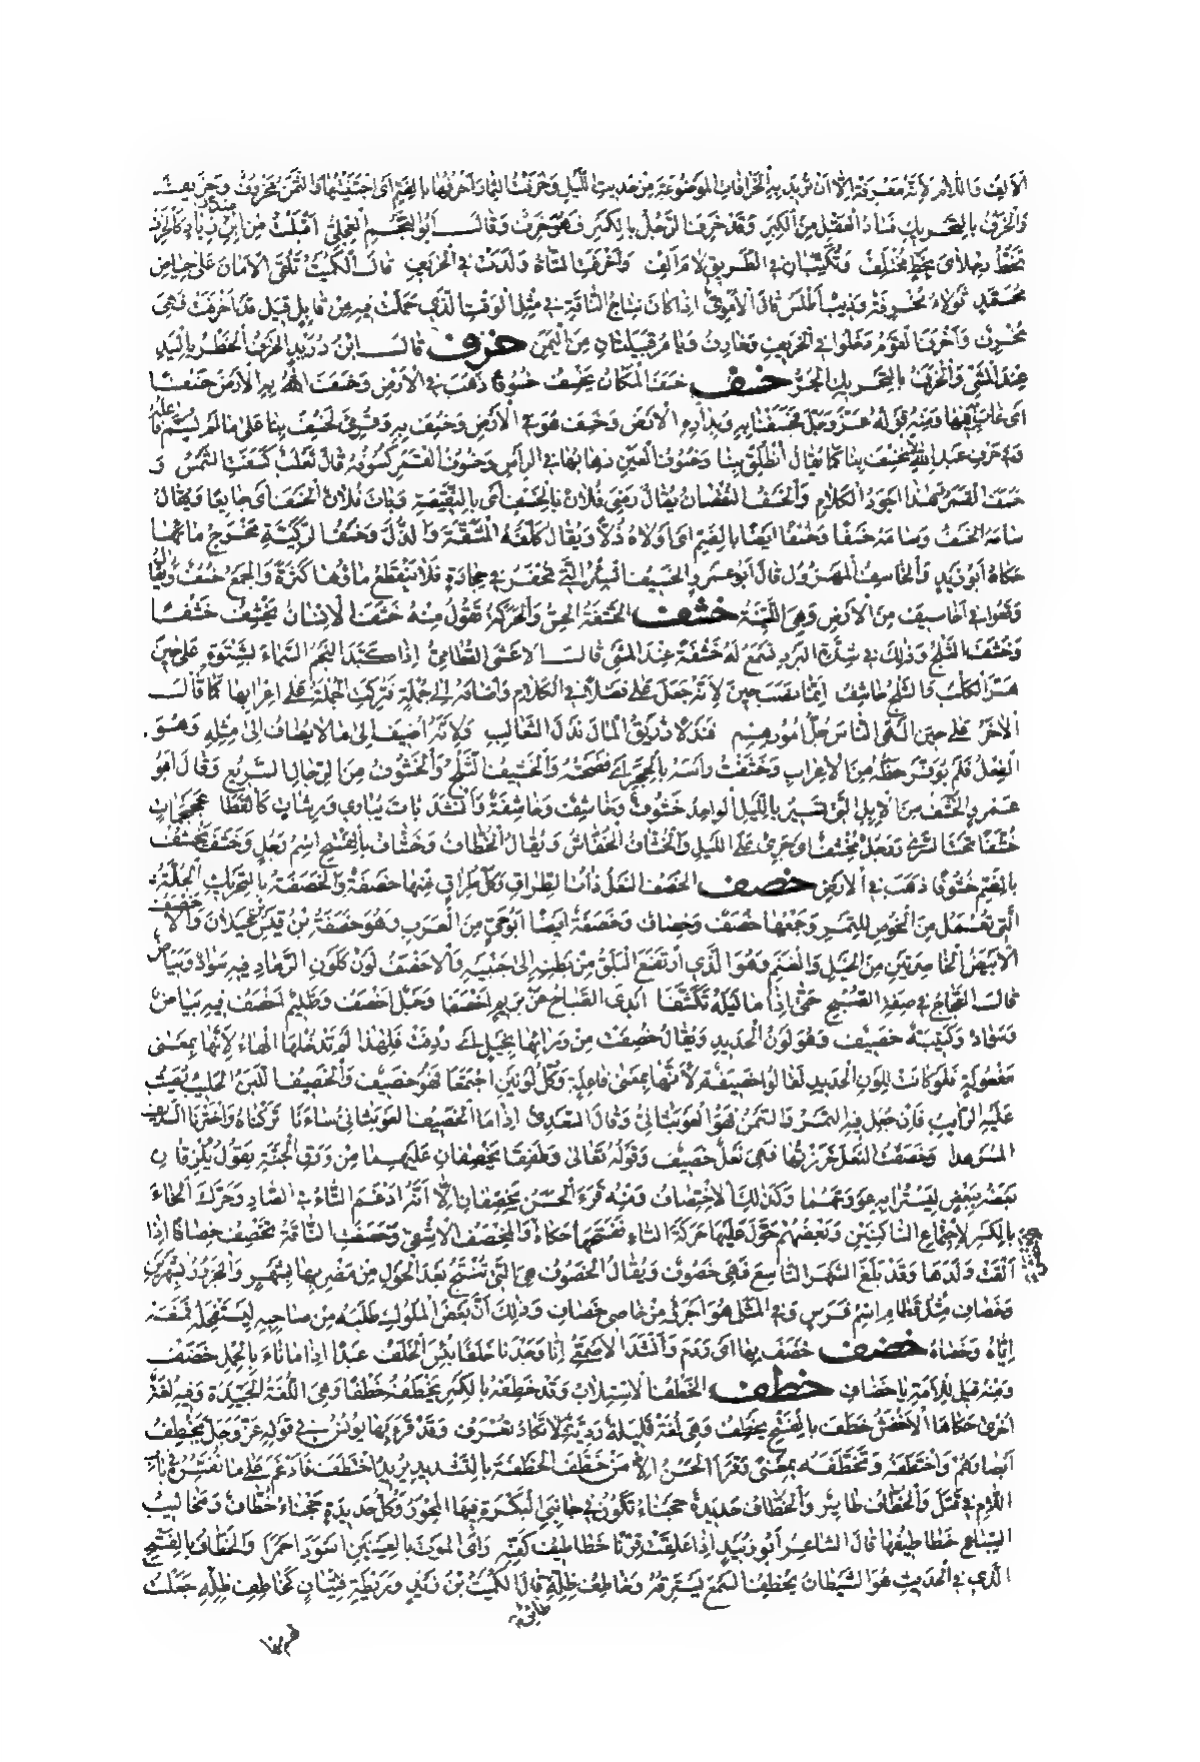 الألف واللام لأنه معرفة إلا أن تريد به الخرافات الموضوعة من حديث الليل وخرفت الثمار أخرفها بالضم أي اجتنيتها والثمر مخروف وخريف
والخرف بالتحريك فساد العقل من الكبر وقد خرف الرجل بالكسر فهو خرف وقال أبو النجم العجلي أقبلت من عند زياد كالخرف
تخط رجلاي بخط مختلف وتكتبان في الطريق لام الف وأخرفت الشاة ولدت في الخريف قال الكميت تلقى الأمان على حياض
محمد ثولاء مخرفة وذئب أطلس قال الأموي إذا كان نتاج الناقة في مثل الوقت الذي حملت فيه من قابل قيل قد أخرفت فهي
مخرف وأخرف القوم دخلوا في الخريف وخارف ويام قبيلتان من اليمن خزف قال ابن دريد الخزف الخطر باليد
عند المشي والخزف بالتحريك الجر خسف خسف المكان يخسف خسوفا ذهب في الأرض وخسف الله به الأرض خسفا
أي غاب به فيها ومنه قوله عز وجل فخسفنا به وبداره الأرض وخسف هو في الأرض وخسف به وقرئ لخسف بنا على ما لم يسم فاعله
وفي حرف عبد الله لانخسف بنا كما يقال انطلق بنا وخسوف العين ذهابها في الرأس وخسوف القمر كسوفه قال ثعلب كسفت الشمس و
خسف القمر هذا أجود الكلام والخسف النقصان يقال رضي فلان بالخسف أي بالنقيصة وبات فلان الخسف أي جائعا ويقال
سامه الخسف وسامه خسفا وخسفا أيضا بالضم أي أولاه ذلا ويقال كلفه المشقة والذل وخسف الركية مخرج مائها
حكاه أبو زيد والخاسف المهزول قال أبو عمرو الخسيف البئر التي تحفر في حجارة فلا ينقطع ماؤها كثرة والجمع خسف ويقال
وقعوا في أخاسيف من الأرض وهي اللينة خشف الخشفة الحس والحركة تقول منه خشف الإنسان يخشف خشفا
وخشف الثلج وذلك في شدة البرد تسمع له خشفة عند المشي قال الأعشى القطامي إذا كبد النجم السماء بشتوة على حين
هر الكلب والثلج خاشف إنما نصب حين لأنه جعل على فضلا في الكلام وأضافه إلى جملة فتركت الجملة على إعرابها كما قال
الآخر على حين ألهى الناس جل أمورهم فندلا زريق المال ندل الثعالب ولأنه أضيف إلى ما لا يضاف إلى مثله وهو
الفعل فلم يوفر حظه من الإعراب وخشفت رأسه بالحجر أي فضخته والخشيف الثلج والخشوف من الرجال السريع وقال أبو
عمرو الخشف من الإبل التي تسير بالليل الواحد خشوف وخاشف وخاشفة وأنشد بات يباري ورشات كالقطا عجمجمات
خشفا تحت السرى ورجل مخشف أي جريء على الليل والخشاف الخفاش ويقال الخطاف وخشاف بالفتح اسم رجل وخشف يخشف
بالضم خشوفا ذهب في الأرض خصف الخصف النعل ذات الطراق وكل طراق منها خصفة والخصفة بالتحريك الجلة
التي تعمل من الخوص للتمر وجمعها خصف وخصاف وخصفة أيضا أبو حي من العرب وهو خصفة بن قيس عيلان والأخصف
الأبيض الخاصرتين من الخيل والغنم وهو الذي ارتفع البلق من بطنه إلى جنبيه والأخصف لون كلون الرماد فيه سواد وبياض
قال العجاج في صفة الصبح حتى إذا ما ليله تكشفا أبدى الصباح عن بريم أخصفا وحبل أخصف وظليم أخصف فيه بياض
وسواد وكتيبة خصيف وهو لون الحديد ويقال خصفت من ورائها بخيل أي ردفت فلهذا لم تدخلها الهاء لأنها بمعنى
مفعولة فلو كانت للون الحديد لقالوا خصيفة لأنها بمعنى فاعلة وكل لونين اجتمعا فهو خصيف والخصيف اللبن الحليب يصب
عليه الرائب فإن جعل فيه التمر والسمن فهو العوبثاني وقال السعدي إذا ما الخصيف العوبثاني ساءنا تركناه واخترنا السديف
المسرهدا وخصفت النعل خرزتها فهي نعل خصيف وقوله تعالى وطفقا يخصفان عليهما من ورق الجنة يقول يلزقان
بعضه ببعض ليسترا به عوراتهما وكذلك الاختصاف ومنه قرأ الحسن يخصفان إلا أنه أدغم التاء في الصاد وحرك الخاء
بالكسر لاجتماع الساكنين وبعضهم حول عليها حركة التاء ففتحها حكاه والمخصف الإشفى وخصفت الناقة تخصف خصافا إذا
ألقت ولدها وقد بلغ الشهر التاسع فهي خصوف ويقال الخصوف هي التي تنتج بعد الحول من مضربها بشهر والجرور بشهرين
وخصاف مثل قطام اسم فرس وفي المثل هو أجرأ من خاصي خصاف وذلك أن بعض الملوك طلبه من صاحبه ليستفحله فمنعه
إياه وخصاه خضف خضف بها أي ردم وأنشد الأصمعي إنا وجدنا خلفا بئس الخلف عبدا إذا ما ناء بالحمل خضف
ومنه قيل للأمة يا خضاف خطف الخطف الاستلاب وقد خطفه بالكسر يخطفه خطفا وهي اللغة الجيدة وفيه لغة
أخرى حكاها الأخفش خطف بالفتح يخطف وهي لغة قليلة رديئة لا تكاد تعرف وقد قرأ بها يونس في قوله عز وجل يخطف
أبصارهم واختطفه وتخطفه بمعنى وقرأ الحسن إلا من خطف الخطفة بالتشديد يريد اختطف فأدغم على ما نفسر في باب
اللام في قتل والخطاف طائر والخطاف حديدة حجناء تكون في جانبي البكرة فيها المحور وكل حديدة حجناء خطاف ومخاليب
السباع خطاطيفها قال الشاعر أبو زبيد إذا علقت قرنا خطاطيف كفه رأى الموت بالعينين أسود أحمرا والخطاف بالفتح
الذي في الحديث هو الشيطان يخطف السمع يسترقه وخاطف ظله طائر قال الكميت بن زيد وريطة فتيان كخاطف ظله جعلت